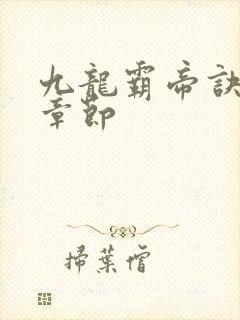 九龍霸帝訣
章節
掃葉僧